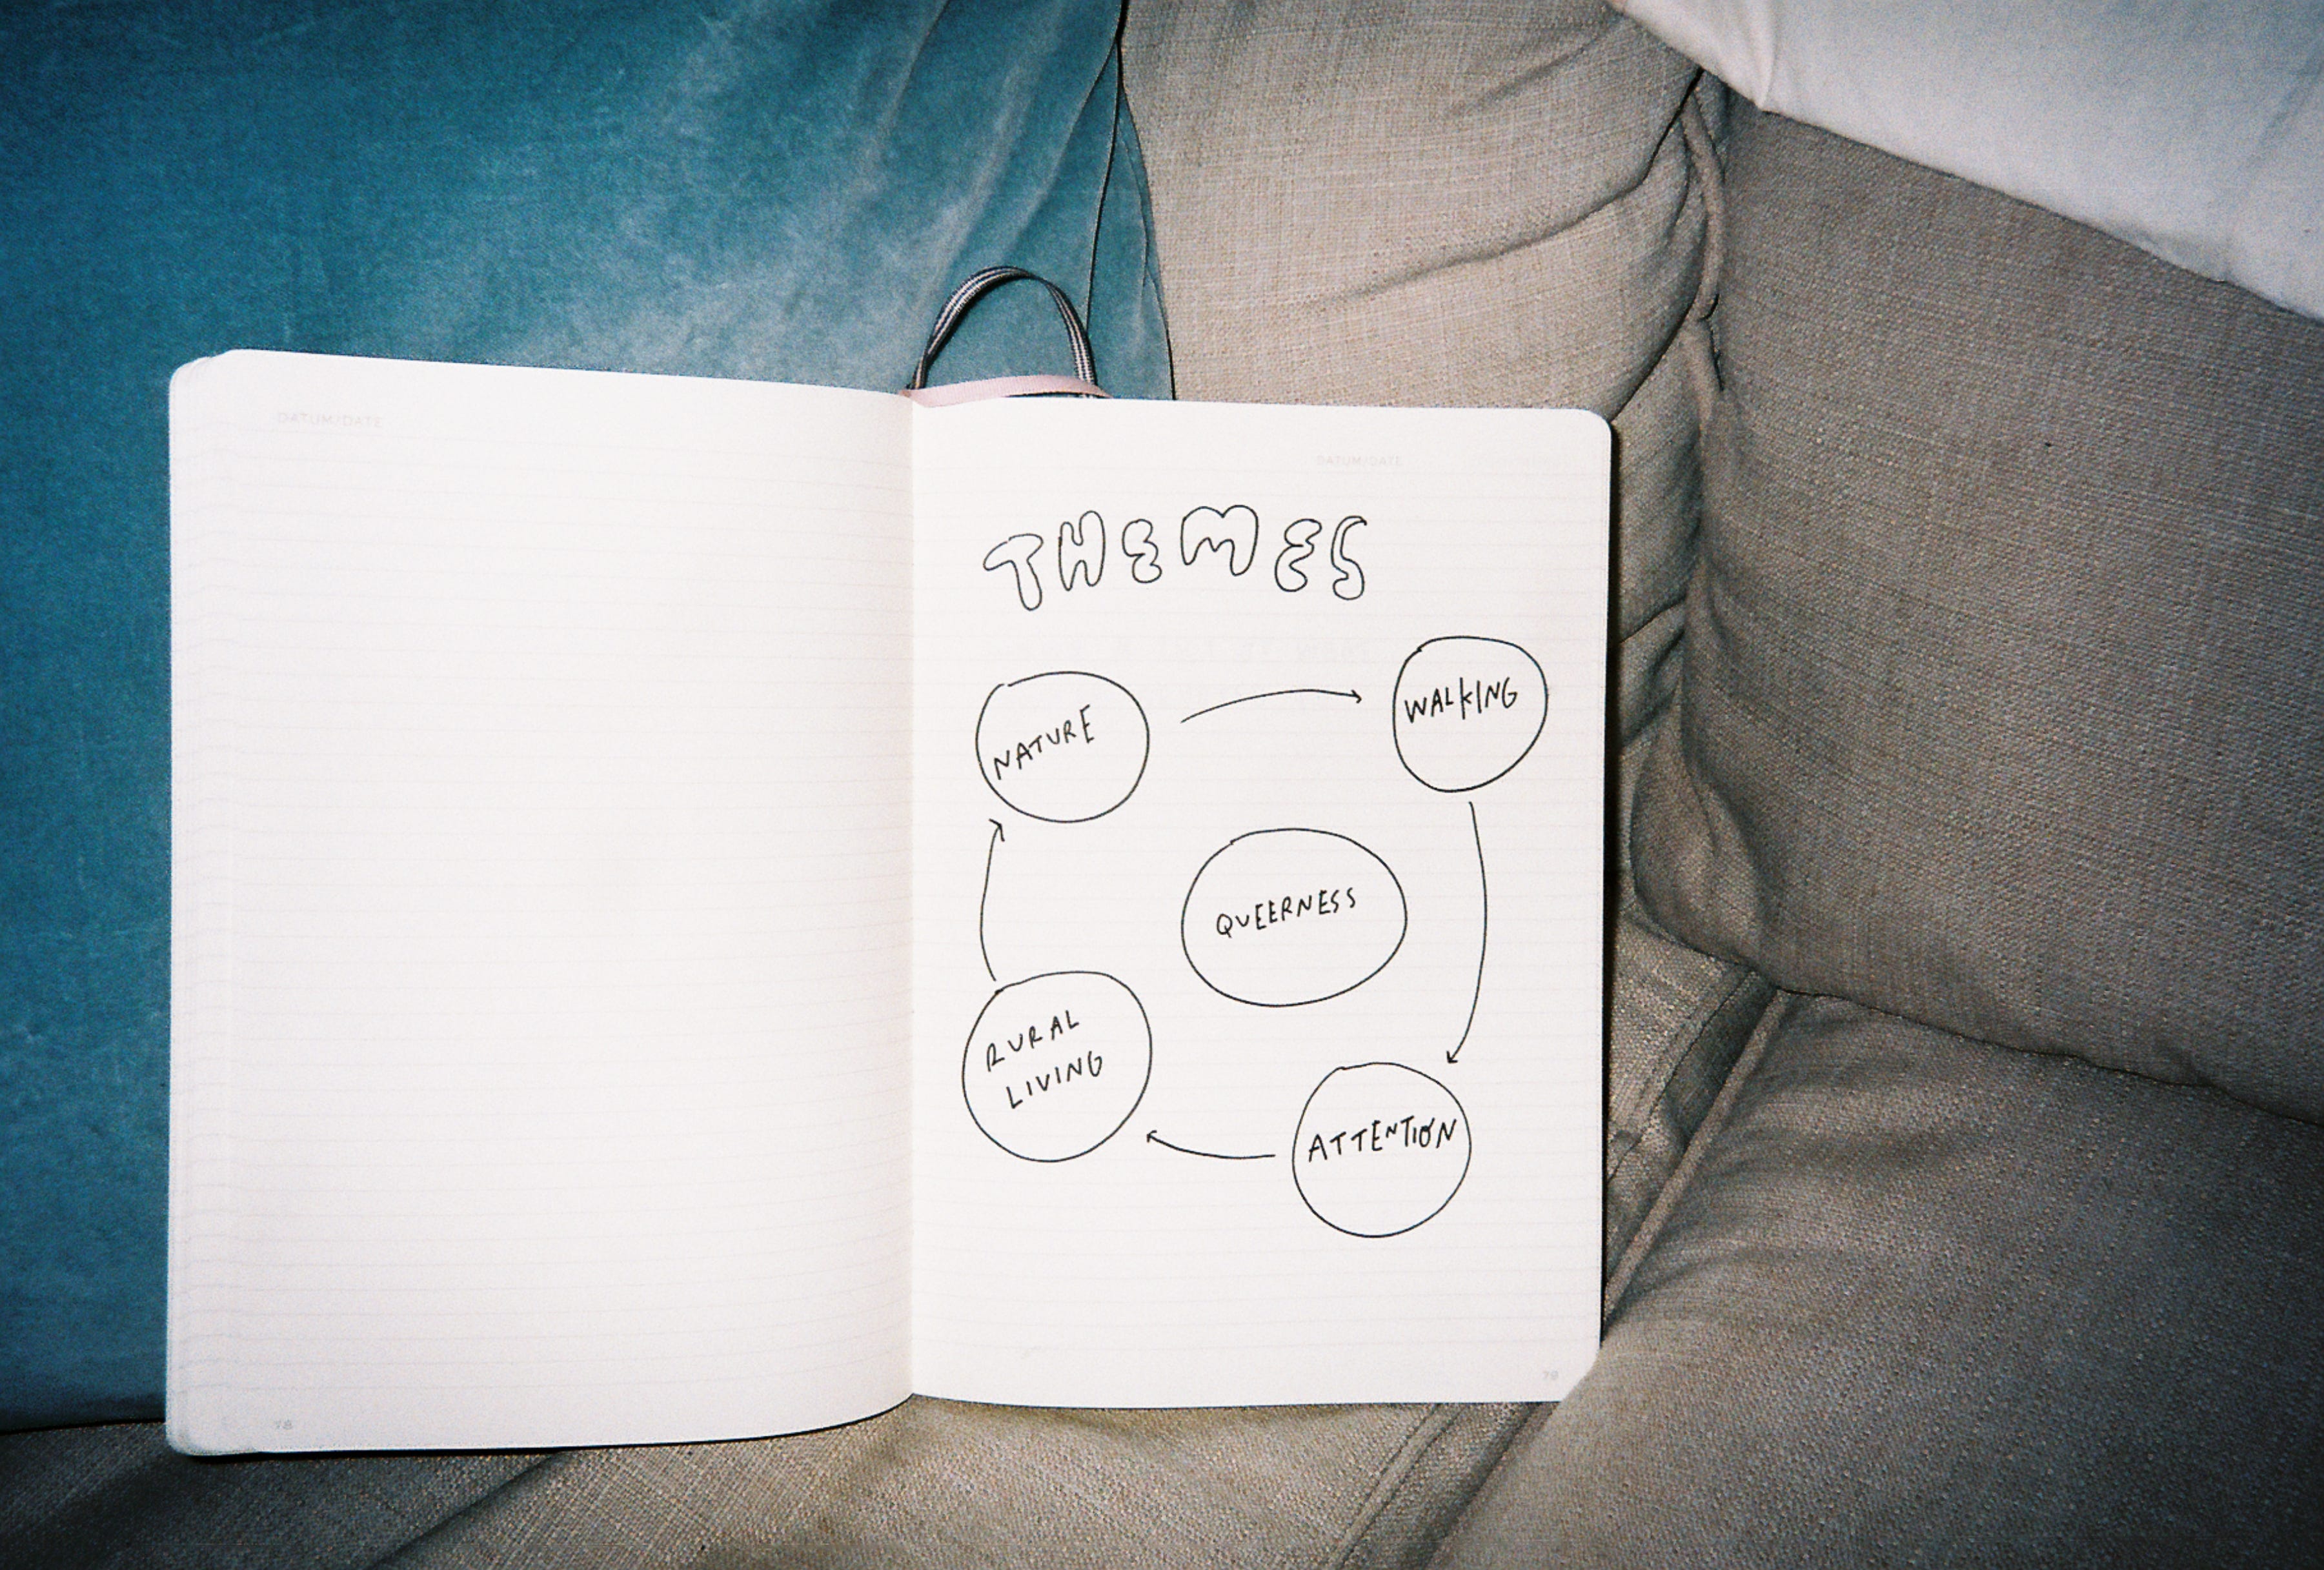 DATUM/DATE
78
DATUM/DATE
THEMES
NATURE
WALKING
QUEERNESS
RURAL
LIVING
ATTENTION
79